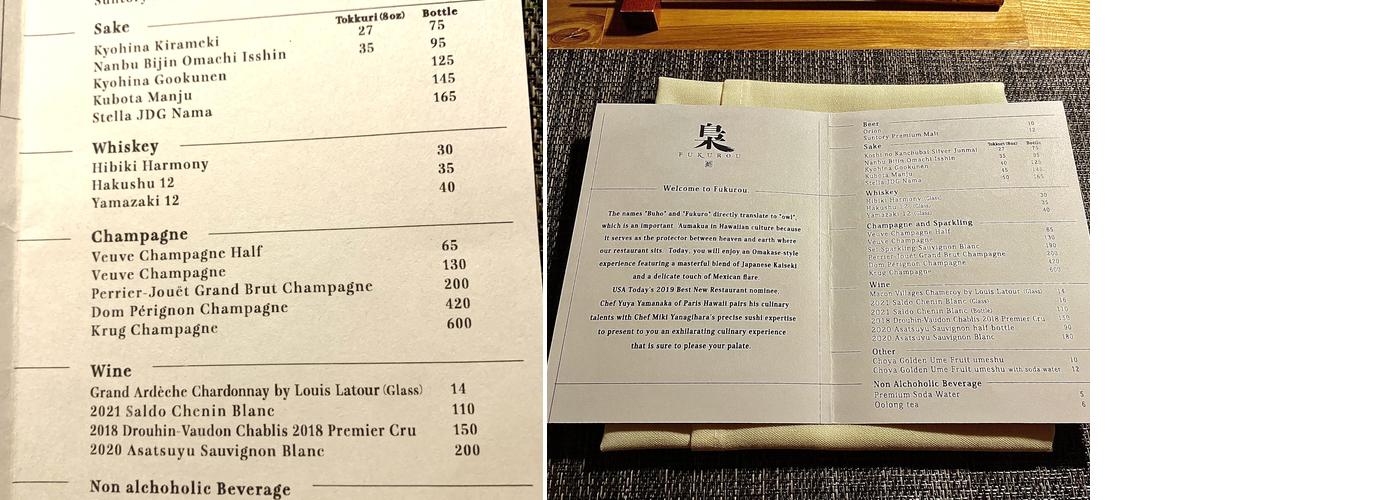 Sake Tokkuri (8oz) Bottle
Kyohina Kirameki 27 75
Nanbu Bijin Omachi Isshin 35 95
Kyohina Gookunen 125
Kubota Manju 145
Stella JDG Nama 165
Whiskey
Hibiki Harmony 30
Hakushu 12 35
Yamazaki 12 40
Champagne
Veuve Champagne Half 65
Veuve Champagne 130
Perrier-Jouët Grand Brut Champagne 200
Dom Pérignon Champagne 420
Krug Champagne 600
Wine
Grand Ardèche Chardonnay by Louis Latour (Glass) 14
2021 Saldo Chenin Blanc 110
2018 Drouhin-Vaudon Chablis 2018 Premier Cru 150
2020 Asatsuyu Sauvignon Blanc 200
Non alchoholic Beverage
梟
FUKUROU
Welcome to Fukurou.
The names "Buho" and "Fukuro" directly translate to "owl",
which is an important Aumakua in Hawaiian culture because
it serves as the protector between heaven and earth where
our restaurant sits. Today, you will enjoy an Omakase-style
experience featuring a masterful blend of Japanese Kaiseki
and a delicate touch of Mexican flare.
USA Today's 2019 Best New Restaurant nominee,
Chef Yuya Yamanaka of Paris Hawaii pairs his culinary
talents with Chef Miki Yanagihara's precise sushi expertise
to present to you an exhilarating culinary experience
that is sure to please your palate.
Beer
Orion 10
Suntory Premium Malt 12
Sake Tokkuri (8oz) Bottle
Koshino Kanchubai Silver Junmai 27 75
Nanbu Bijin Omachi Isshin 35 95
Kyohina Gookunen 40 125
Kubota Manju 45 145
Stella JDG Nama 50 165
Whiskey
Hibiki Harmony (Glass) 30
Hakushu 12 (Glass) 35
Yamazaki 12 (Glass) 40
Champagne and Sparkling
Veuve Champagne Half 65
Veuve Champagne 130
Sparkling Sauvignon Blanc 190
Perrier-Jouët Grand Brut Champagne 200
Dom Pérignon Champagne 420
Krug Champagne 600
Wine
Macon Villages Chameroy by Louis Latour (Glass) 14
2021 Saldo Chenin Blanc (Glass) 16
2021 Saldo Chenin Blanc (Bottle) 110
2018 Drouhin-Vaudon Chablis 2018 Premier Cru 150
2020 Asatsuyu Sauvignon half bottle 90
2020 Asatsuyu Sauvignon Blanc 180
Other
Choya Golden Ume Fruit umeshu 10
Choya Golden Ume Fruit umeshu with soda water 12
Non Alchoholic Beverage
Premium Soda Water 5
Oolong tea 6